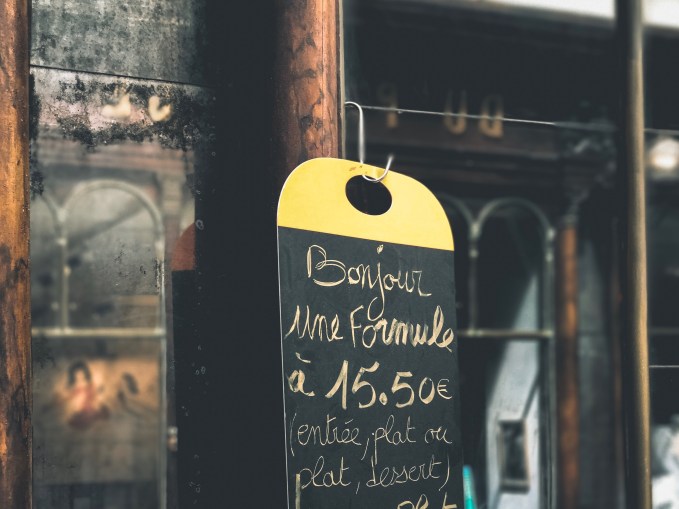 Bonjour
Une Formule
à 15.50€
(entrée, plat ou
plat, dessert)